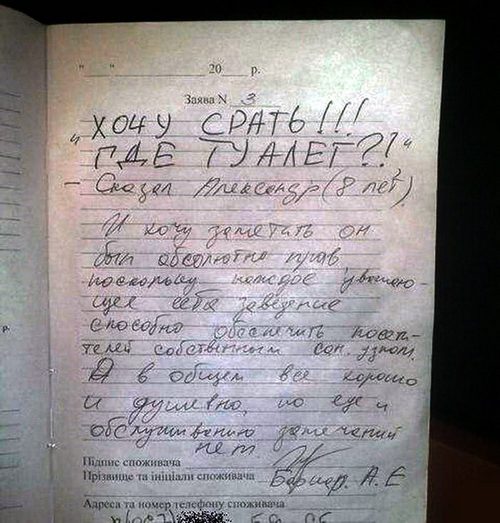 "____" ________________ 20____ р.
Заява N 3
"ХОЧУ СРАТЬ!!!
ГДЕ ТУАЛЕТ?!"
– Сказал Александр (8 лет)
И хочу заметить он
был абсолютно прав
поскольку каждое уважаю-
щее себя заведение
способно обеспечить посети-
телей собственным сан. узлом.
А в общем все хорошо
и душевно, по еде и
обслуживанию замечаний
нет.
Підпис споживача
Прізвище та ініціали споживача А. Е
Адреса та номер телефону споживача
р.